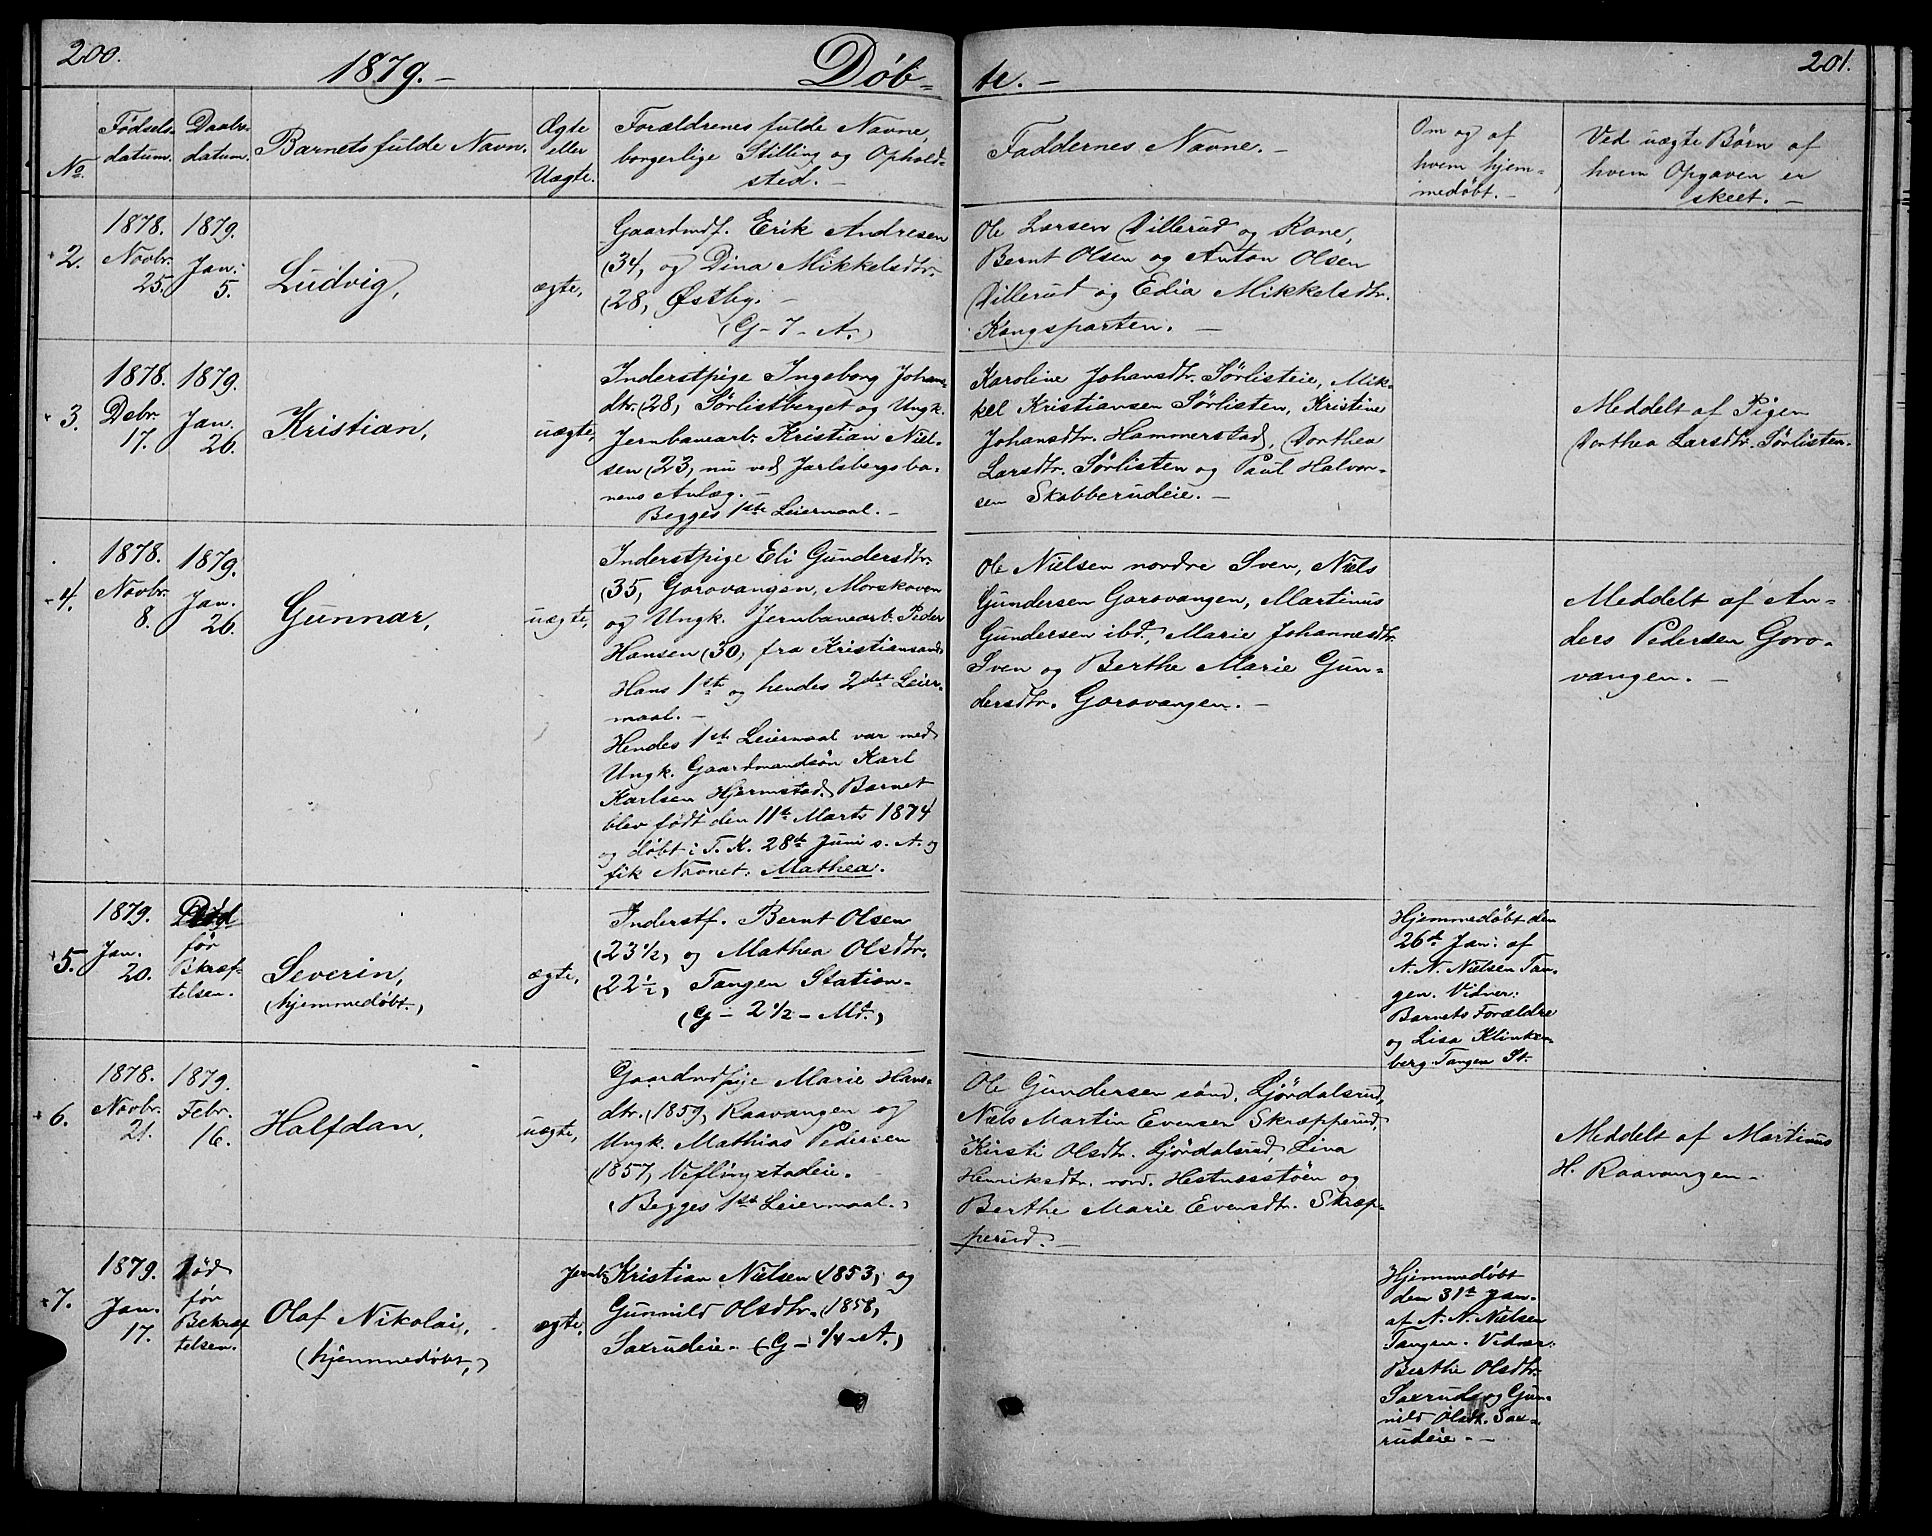 200.
1879.-
Døb-
te.-
201.
No.
Fødsels-
datum.
Daabs-
datum.
Barnets fulde Navn.
Ægte
eller
Uægte.
Forældrenes fulde Navne,
borgerlige Stilling og Ophold-
sted.-
Faddernes Navne.-
Om og af
hvem hjem-
medøbt.-
Ved uægte Børn af
hvem Opgaven er
skeet.-
2.
1878.
Novbr.
25.
1879.
Jan:
5.
Ludvig,
ægte,
Gaardmdf. Erik Andresen
(34, og Dina Mikkelsdtr.
(28, Østby.-
(G-7-A.)
Ole Larsen Dillerud og Kone,
Bernt Olsen og Anton Olsen
Dillerud og Edia Mikkelsdtr.
Kongsparten.-
3.
1878.
Debr.
17.
1879.
Jan.
26.
Kristian,
uægte,
Inderstpige Ingeborg Johans-
dtr. (28, Sørlistberget og Ungk.
Jernbanearb. Kristian Niel-
sen (23, nu ved Jarlsbergsba-
nens Anlæg.-
Begges 1ste Leiermaal.-
Karoline Johansdtr. Sørlisteie, Mik-
kel Kristiansen Sørlisten, Kristine
Johansdtr. Hammerstad, Dorthea
Larsdtr. Sørlisten og Paul Halvor-
sen Skabberudeie.-
Meddelt af Pigen
Dorthea Larsdtr. Sørlisten.
4.
1878.
Novbr.
8.
1879.
Jan.
26.
Gunnar,
uægte,
Inderstpige Eli Gundersdtr.
(35, Gorovangen, Morskoven
og Ungk. Jernbanearb. Peder
Hansen (30, fra Kristiansand
Hans 1ste og hendes 2det Leier-
maal.-
Hendes 1ste Leiermaal var med
Ungk. Gaardmandsøn Karl
Karlsen Hjermstad. Barnet
blev født den 11te Marts 1874
og døbt i T. K. 28de Juni s. A. og
fik Navnet: Mathea.
Ole Nielsen nordre Sven, Niels
Gundersen Gorovangen, Martinus
Gundersen ibd, Marie Johannesdtr.
Sven og Berthe Marie Gun-
dersdtr. Gorovangen.-
Meddelt af An-
ders Pedersen Goro-
vangen.-
5.
1879.
Jan.
20.
Død
før
Bkræf-
telsen.
Severin,
(hjemmedøbt.)
ægte,
Inderstf. Bernt Olsen
(23 1/2, og Mathea Olsdtr.
(22 1/2, Tangen Station-
(G-2 1/2-Md.)
Hjemmedøbt den
26de Jan: af
A. N. Nielsen Tan-
gen. Vidner:
Barnets Forældre
og Lisa Klinken-
berg Tangen St.
6.
1878.
Novbr.
21.
1879.
Febr.
16.
Halfdan,
uægte,
Gaardmdpige Marie Hans-
dtr. (1859, Raavangen og
Ungk. Mathias Pedersen
(1857, Veflingstadeie.
(Begges 1ste Leiermaal.)
Ole Gundersen sønd. Ljørdalsrud,
Niels Martin Evensen Skræpperud,
Kirsti Olsdtr. Ljørdalsrud, Lina
Henriksdtr. nord. Hestnæsstøen og
Berthe Marie Evensdtr. Skræp-
perud.-
Meddelt af Martinus
H. Raavangen-
7.
1879.
Jan.
17.
Død
før
Bekræf
telsen.
Olaf Nikolai,
(hjemmedøbt,)
ægte,
Jernb. Kristian Nielsen (1853, og
Gunnild Olsdtr. (1858,
Saxrudeie.- (G-1/4-A.)
Hjemmedøbt
den 31te Jan.
af A. N. Nielsen
Tangen. Vidner:
Berthe Olsdtr.
Saxrud og Gun-
nild Olsdt. Sax-
rudeie.-